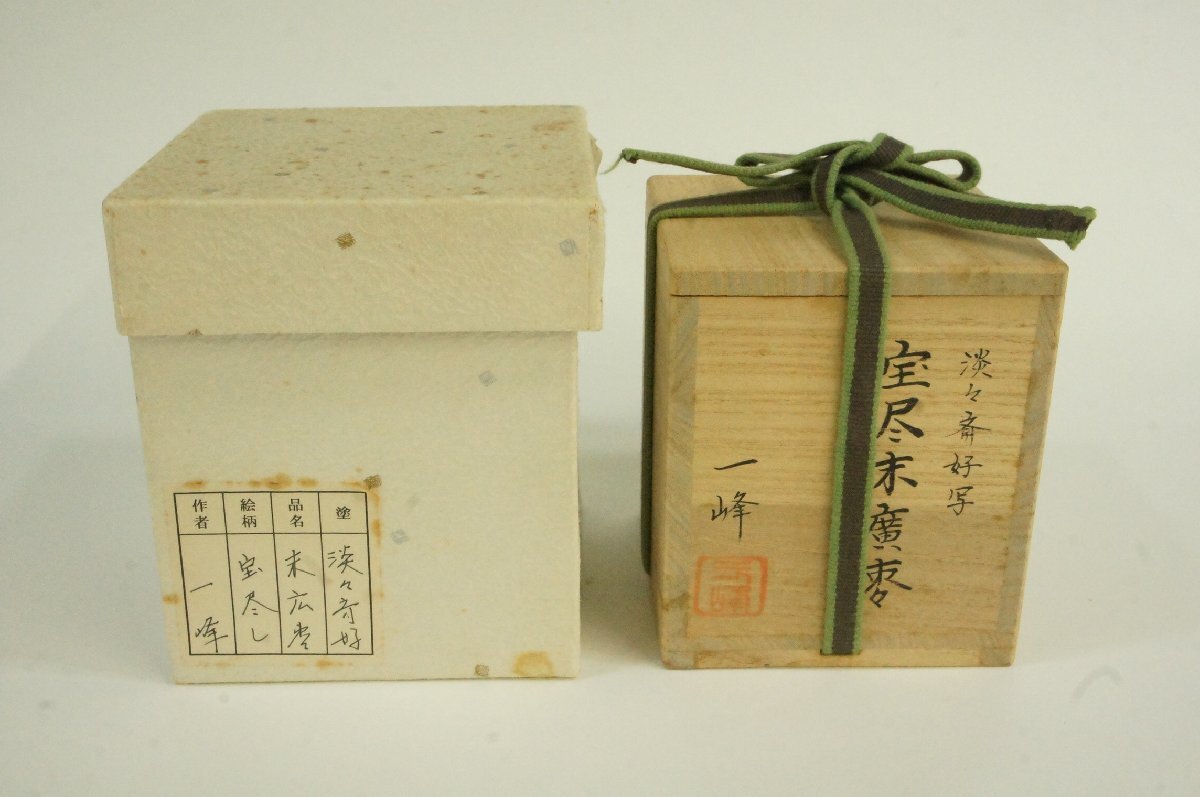 塗 淡々斎好
品名 末広棗
絵柄 宝尽し
作者 一峰
淡々斎好写
宝尽末廣棗
一峰